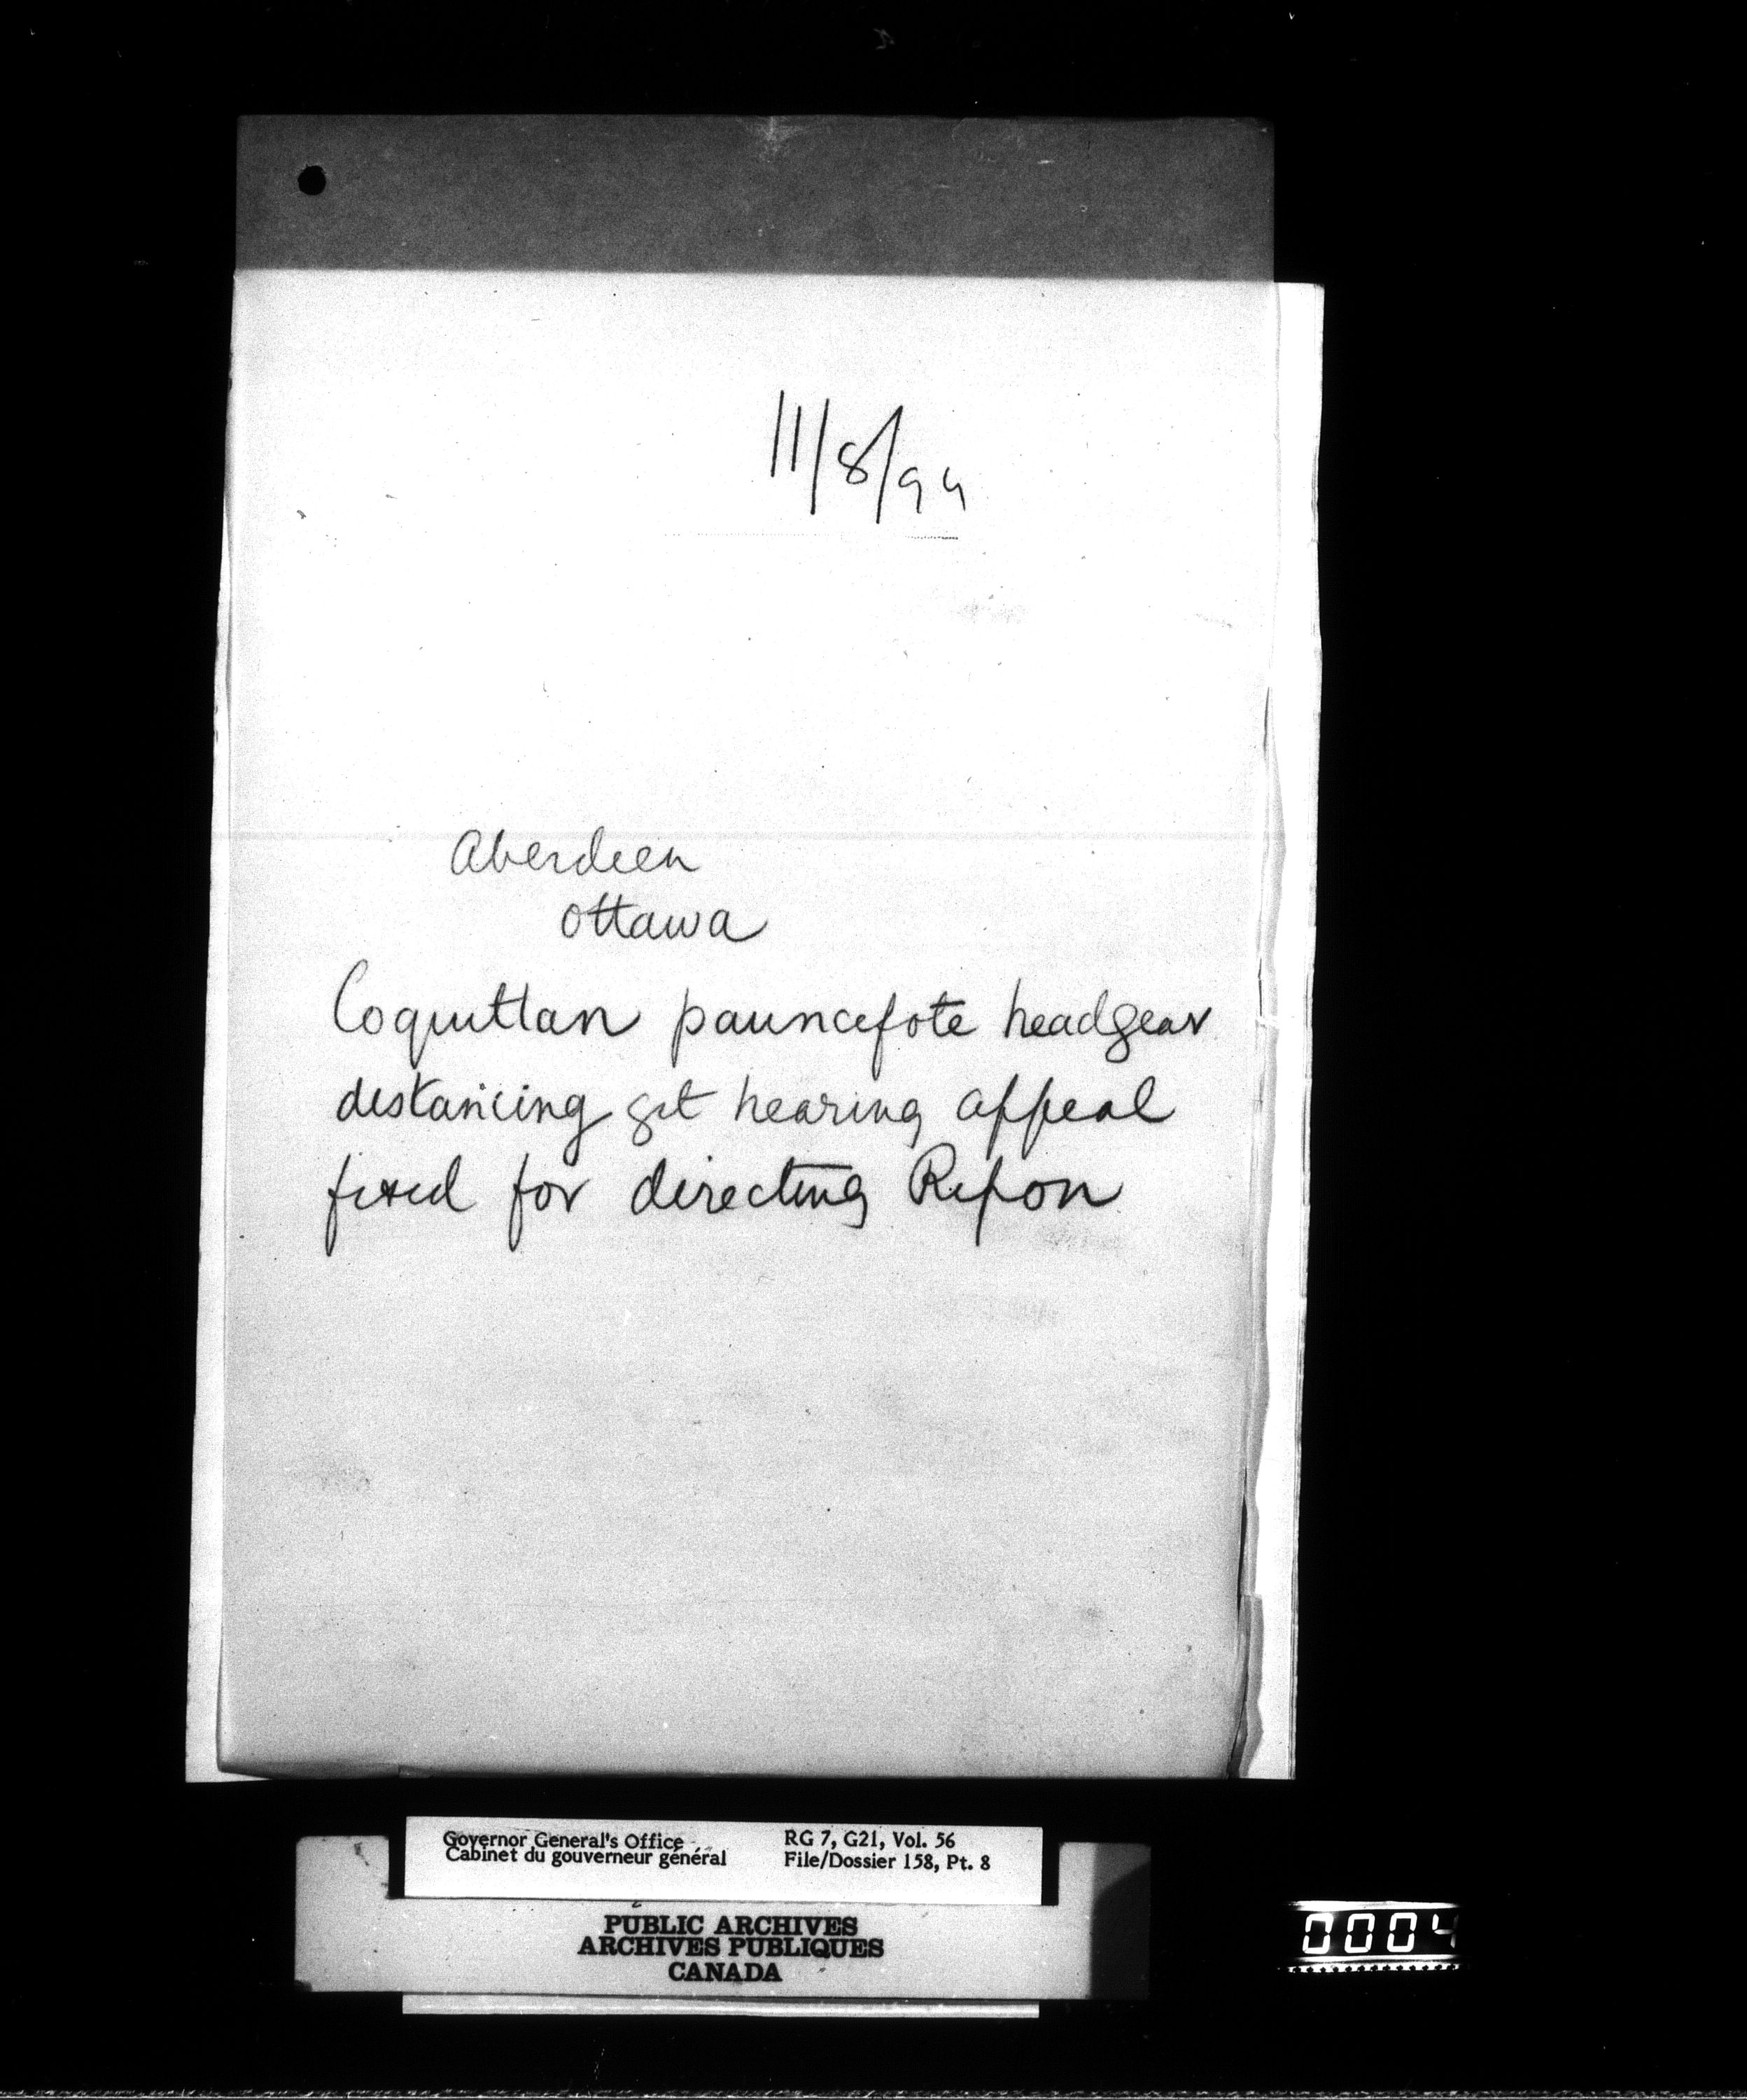 11/8/94
Aberdeen
Ottawa
Coquittlan pauncefote headgear
distancing get hearing appeal
fixed for directing Ripon
Governor General's Office
Cabinet du gouverneur général
RG 7, G21, Vol. 56
File/Dossier 158, Pt. 8
PUBLIC ARCHIVES
ARCHIVES PUBLIQUES
CANADA
0004